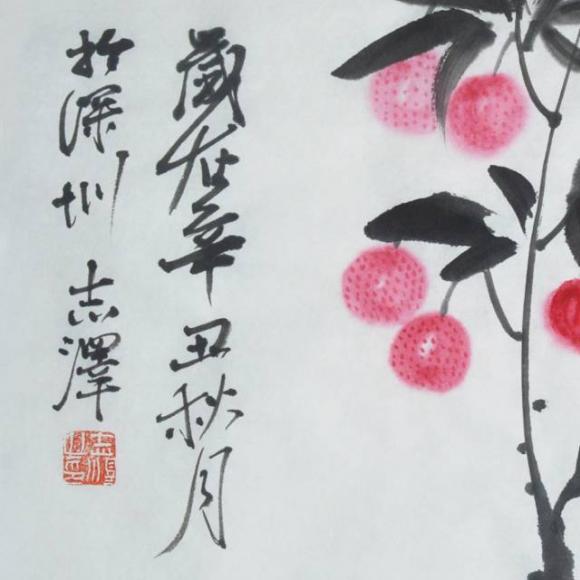 歲在辛丑秋月
於深圳 志澤